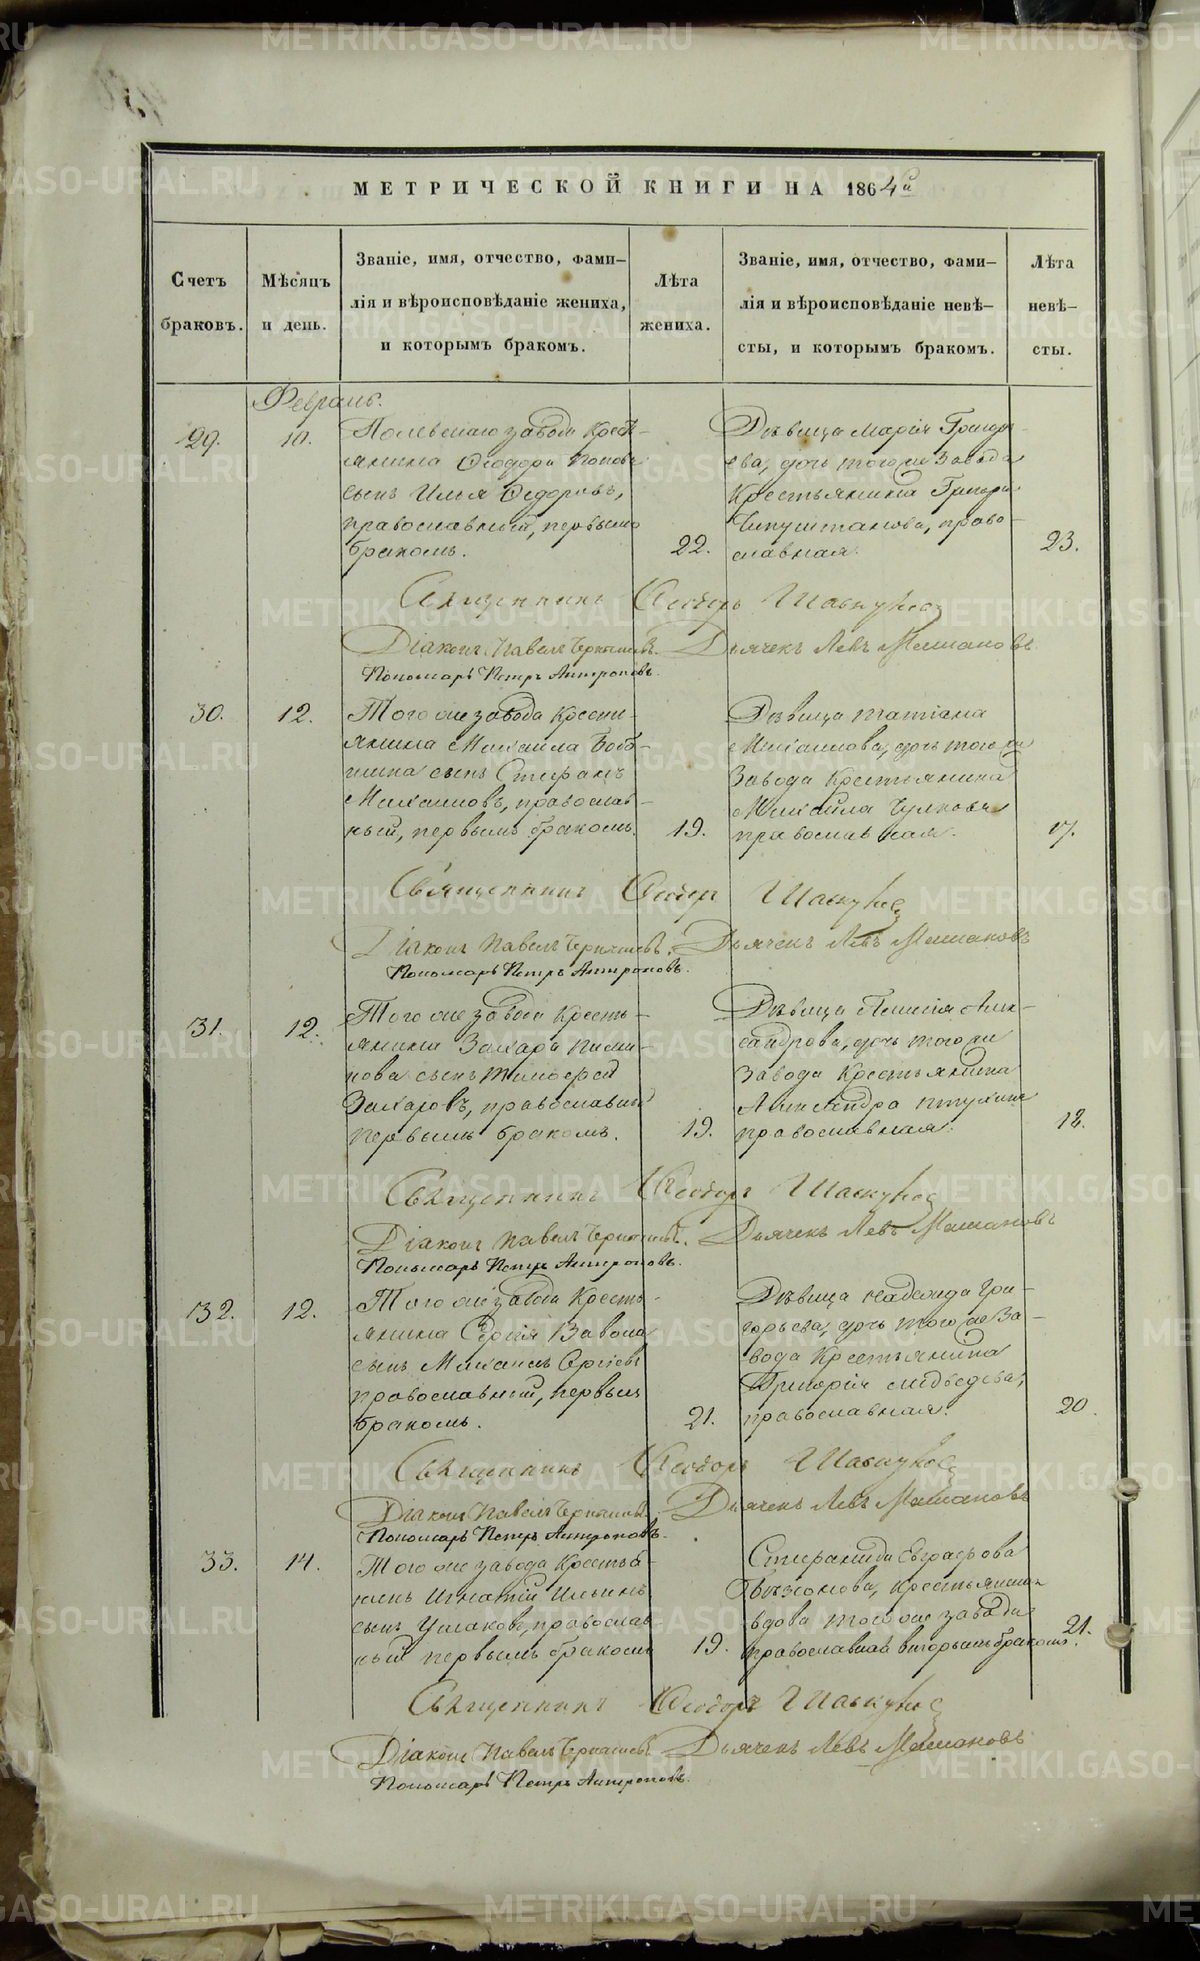 МЕТРИЧЕСКОЙ КНИГИ НА 1864й
Счетъ браковъ.
Мѣсяцъ и день.
Званіе, имя, отчество, фами-
лія и вѣроисповѣданіе жениха,
и которымъ бракомъ.
Лѣта жениха.
Званіе, имя, отчество, фами-
лія и вѣроисповѣданіе невѣ-
сты, и которымъ бракомъ.
Лѣта невѣ-
сты.
Февраль.
29.
10.
Полевскаго завода Кресть-
янина Ѳеодора Попова
сынъ Илья Ѳедоровъ,
православный, первымъ
бракомъ.
22.
Дѣвица Марія Григорь-
ева, дочь того же завода
Крестьянина Григорія
Чипуштанова, право-
славная.
23.
Священникъ Ѳеодоръ Шаскунов
Діаконъ Павелъ Чернышевъ. Дьячекъ Левъ
Пономарь Петръ Антроповъ.
30.
12.
Того же завода Крестья-
янина Михаила
сынъ Стефанъ
Михаиловъ, православ-
ный, первымъ бракомъ.
19.
Дѣвица Татіана
Михаилова, дочь того же
завода Крестьянина
Михаила Чулкова
православная.
17.
Священникъ Ѳеодоръ
Діаконъ Павелъ Чернышевъ. Дьячекъ Левъ
Пономарь Петръ Антроповъ.
31.
12.
Того же завода Кресть-
янина Захара Пими-
нова сынъ Тимофей
Захаровъ, православный
первымъ бракомъ.
19.
Дѣвица Алек-
сандрова, дочь того же
завода Крестьянина
Александра Птухина
православная.
18.
Священникъ Ѳеодоръ
Діаконъ Павелъ Чернышевъ. Дьячекъ Левъ
Пономарь Петръ Антроповъ.
32.
12.
Того же завода Кресть-
янина Сергія
сынъ Михаилъ Сергіевъ
православный, первымъ
бракомъ.
21.
Дѣвица Надежда Гри-
горьева, дочь того же за-
вода Крестьянина
Григорія Медведева,
православная.
20.
Священникъ Ѳеодоръ
Діаконъ Павелъ Чернышевъ. Дьячекъ Левъ
Пономарь Петръ Антроповъ.
33.
14.
Того же завода Крестья-
нинъ Игнатій Ильинъ
сынъ Ушаковъ, православ-
ный первымъ бракомъ
19.
Стефанида Евграфова
Крестьянская
вдова того же завода
православная вторымъ бракомъ.
21.
Священникъ Ѳеодоръ
Діаконъ Павелъ Чернышевъ. Дьячекъ Левъ
Пономарь Петръ Антроповъ.
METRIKI.GASO-URAL.RU